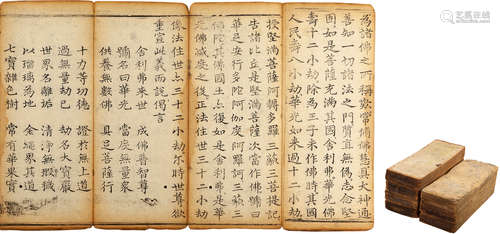 為諸佛之所稱歎常修佛慧具大神通
善知一切諸法之門質直無偽志念堅
固如是菩薩充滿其國舍利弗華光佛
壽十二小劫除為王子未作佛時其國
人民壽八小劫華光如來過十二小劫
授堅滿菩薩阿耨多羅三藐三菩提記
告諸比丘是堅滿菩薩次當作佛號曰
華足安行多陀阿伽度阿羅訶三藐三
佛陀其佛國土亦復如是舍利弗是華
光佛滅度之後正法住世三十二小劫
像法住世亦三十二小劫尒時世尊欲
重宣此義而說偈言
舍利弗來世 成佛普智尊
號名曰華光 當度無量眾
供養無數佛 具足菩薩行
十力等功德 證於無上道
過無量劫已 劫名大寶嚴
世界名離垢 清淨無瑕穢
以瑠璃為地 金繩界其道
七寶雜色樹 常有華果實